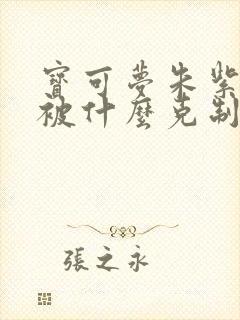 寶可夢朱紫
被什麼克制
張之永